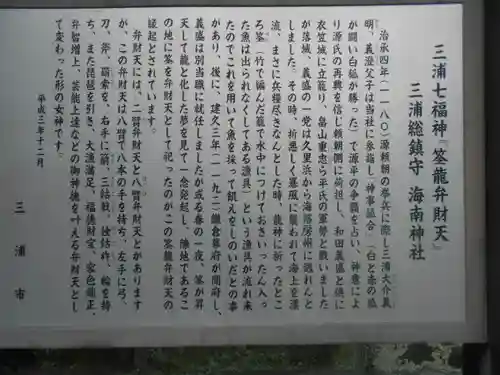 三浦七福神『筌龍弁財天』
三浦総鎮守 海南神社
治承四年(一一八〇)源頼朝の挙兵に際し三浦大介義
明、義澄父子は当社に参詣し「神事狐合」(白と赤の狐
が闘い白狐が勝った)で源平の争覇を占い、神意によ
り源氏の再興を信じ頼朝側に荷担し、和田義盛と供に
衣笠城に立籠り、畠山重忠ら平氏の軍勢と戦いました
が落城、義盛の一党は久里浜から海路房州に逃れんと
しました。その時、折悪しく暴風に襲われて海上を漂
流、まさに兵糧尽きなんとした時、龍神に祈ったとこ
ろ筌(竹で編んだ籠で水中につけておさいったん入っ
た魚は出られなくしてある漁具)という漁具が流れ来
たのでこれを用いて魚を採って飢えをしのいだとの事
があり、後に、建久三年(一一九二)鎌倉幕府が開府し、
義盛は別当職に就任しましたが或る春の一夜、筌が昇
天して龍と化した夢を見て一念発起し、縁地であるこ
の地に筌を弁財天として祀ったのがこの筌龍弁財天の
縁起とされています。
弁財天には、二臂弁財天と八臂弁財天とがあります
が、この弁財天は八臂で八本の手を持ち、左手に弓、
刀、斧、羂索を、右手に箭、三鈷戟、独鈷杵、輪を持
ち、また琵琶を引き、大漁満足、福徳財宝、家色端正、
弁智増上、芸能上達などの御神徳を叶える弁財天とし
て変わった形の女神です。
平成三年十二月
三浦市